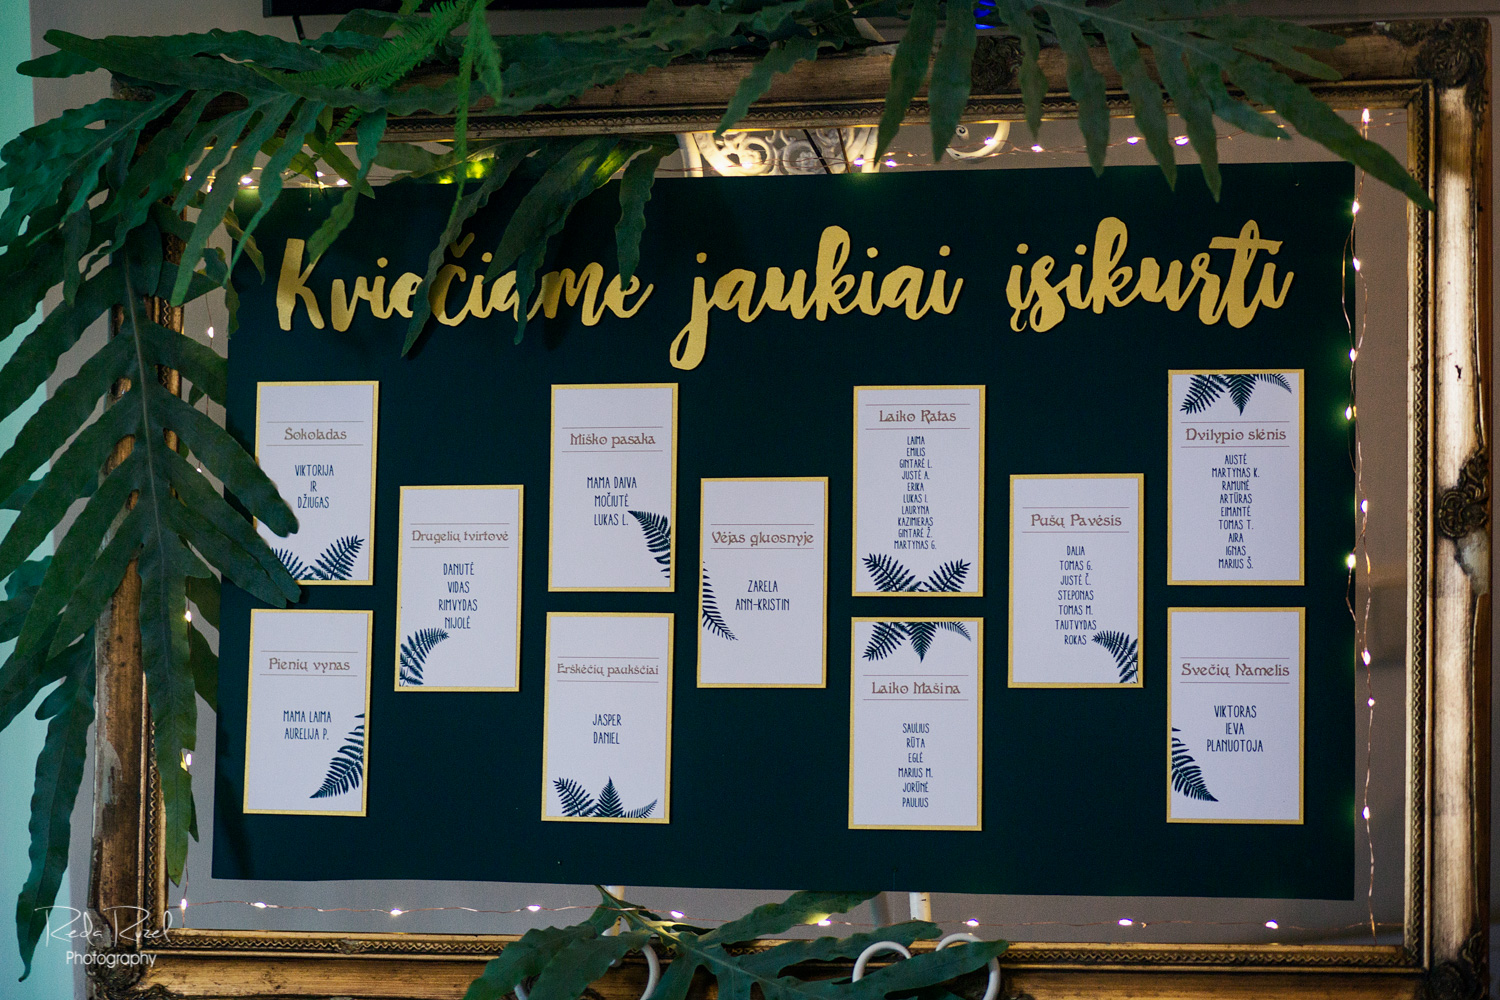 Kviečiame jaukiai įsikurti
Šokoladas
VIKTORIJA
IR
DŽIUGAS
Pienių vynas
MAMA LAIMA
AURELIJA P.
Drugelių tvirtovė
DANUTĖ
VIDAS
RIMVYDAS
NIJOLĖ
Miško pasaka
MAMA DAIVA
MOČIUTĖ
LUKAS L.
Erškėčių paukščiai
JASPER
DANIEL
Vėjas gluosnyje
ZARELA
ANN-KRISTIN
Laiko Ratas
LAIMA
EMILIS
GINTARĖ L.
JUSTĖ A.
ERIKA
LUKAS I.
LAURYNA
KAZIMIERAS
GINTARĖ Ž.
MARTYNAS G.
Laiko Mašina
SAULIUS
RŪTA
EGLĖ
MARIUS M.
JORŪNĖ
PAULIUS
Pušų Pavėsis
DALIA
TOMAS G.
JUSTĖ Č.
STEPONAS
TOMAS M.
TAUTVYDAS
ROKAS
Dvilypio slėnis
AUSTĖ
MARTYNAS K.
RAMUNĖ
ARTŪRAS
EIMANTĖ
TOMAS T.
AIRA
IGNAS
MARIUS Š.
Svečių Namelis
VIKTORAS
IEVA
PLANUOTOJA
Reda Ruzel
Photography